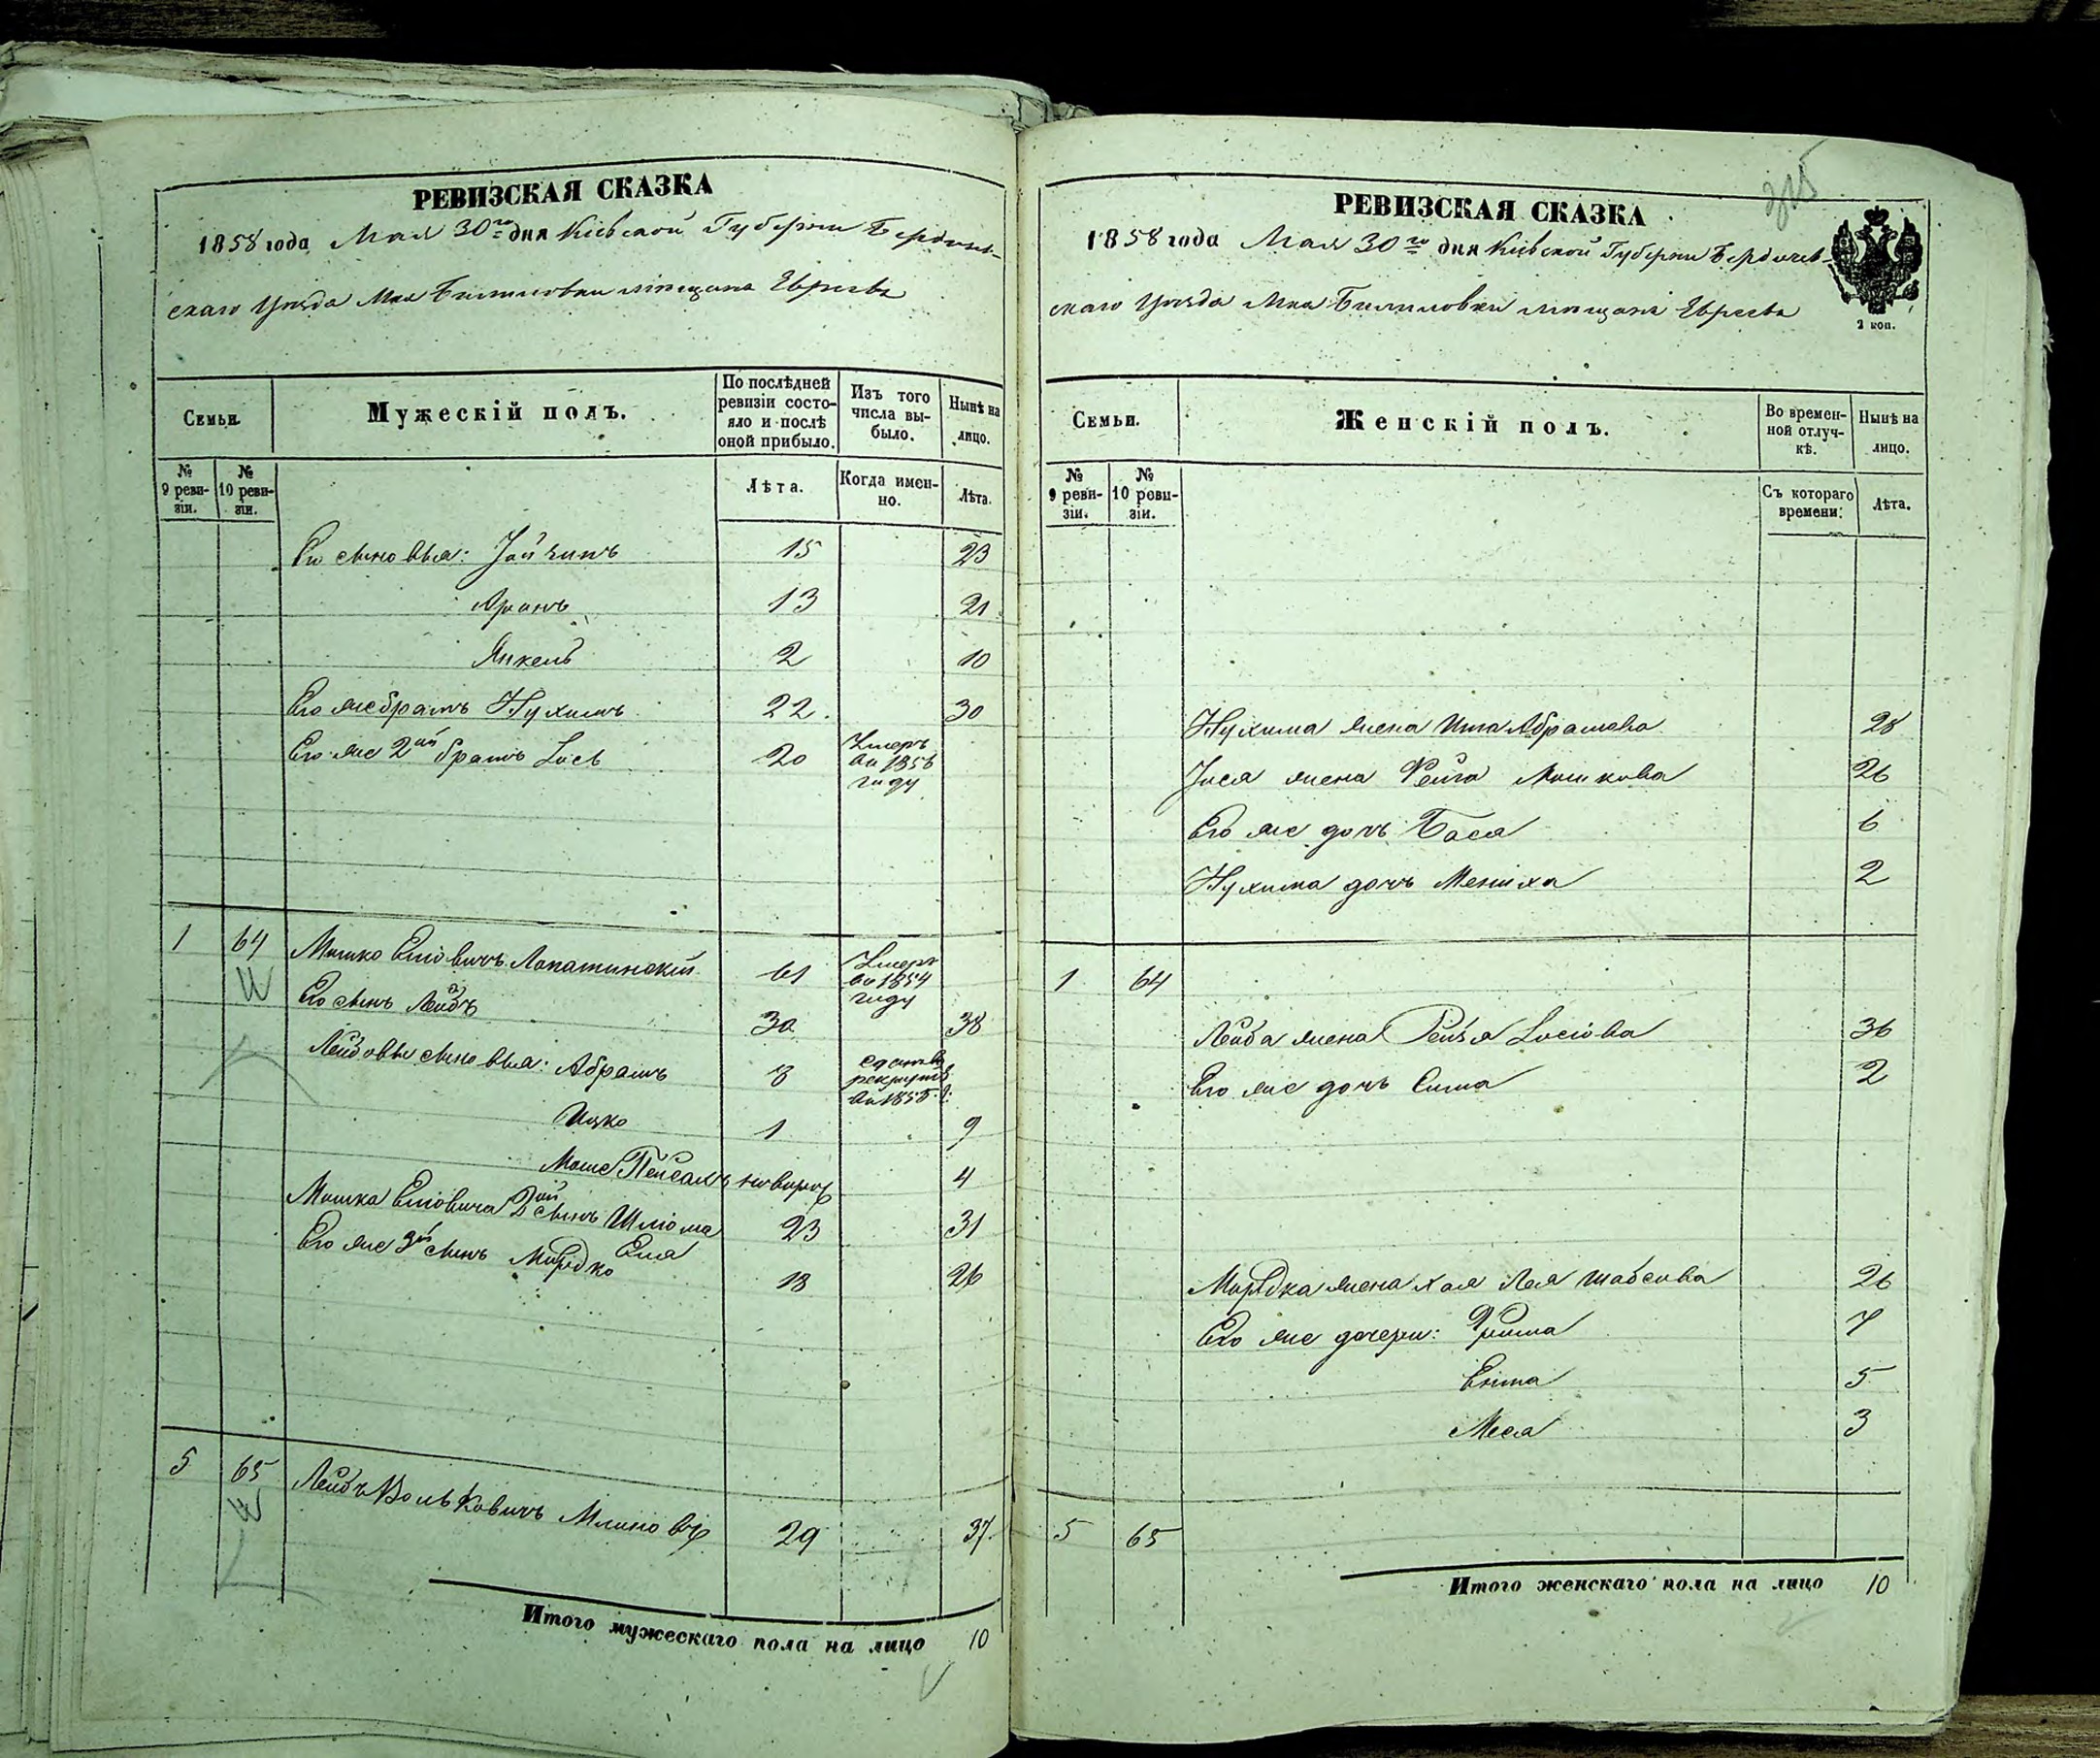 РЕВИЗСКАЯ СКАЗКА
1858 года Мая 30го дня Кіевской Губерніи Бердичев-
скаго Уѣзда Мка Билиловки мѣщанъ Евреевъ
Семьи.
Мужескій полъ.
По послѣдней ревизіи состояло и послѣ оной прибыло.
Изъ того числа выбыло.
Нынѣ на лицо.
№ 9 ревизіи.
№ 10 ревизіи.
Лѣта.
Когда именно.
Лѣта.
Его сыновья: 15 23
Аронъ 13 21
Янкель 2 10
Его же братъ Нухимъ 22. 30
Его же 2ой братъ Іось 20 Умеръ въ 1856 году
1 64 Мошко Еліовичъ Лопатинскій 61 Умеръ въ 1854 году
Его сынъ Лейба 30 38
Лейбовы сыновья: Абрамъ 8 сданъ въ рекруты въ 1855 г:
Ицко 1 9
Моше Пейсахъ новорож 4
Мошка Еліовича 2ой сынъ Шліома 23 31
Его же 3й сынъ Мордко Еля 18 26
5 65 Лейбъ Вольковичъ 29 37.
Итого мужескаго пола на лицо 10
325
РЕВИЗСКАЯ СКАЗКА
1858 года Мая 30го дня Кіевской Губерніи Бердичев-
скаго Уѣзда Мка Билиловки мѣщанъ Евреевъ
2 коп.
Семьи.
Женскій полъ.
Во временной отлучкѣ.
Нынѣ на лицо.
№ 9 ревизіи.
№ 10 ревизіи.
Съ котораго времени:
Лѣта.
Нухима жена Абрамова 28
Іося жена Фейга Мошкова 26
Его же дочь Бася 6
Нухима дочь 2
1 64
Лейба жена Рейзя Іосіова 36
Его же дочь Сима 2
Мордка жена Хая Лея Шабсова 26
Его же дочери: Фрима 7
5
Меся 3
5 65
Итого женскаго пола на лицо 10